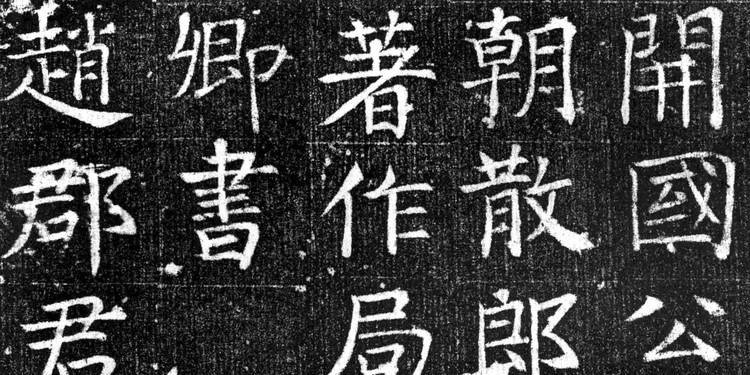 開國公
朝散郎
著作局
卿書
趙郡君